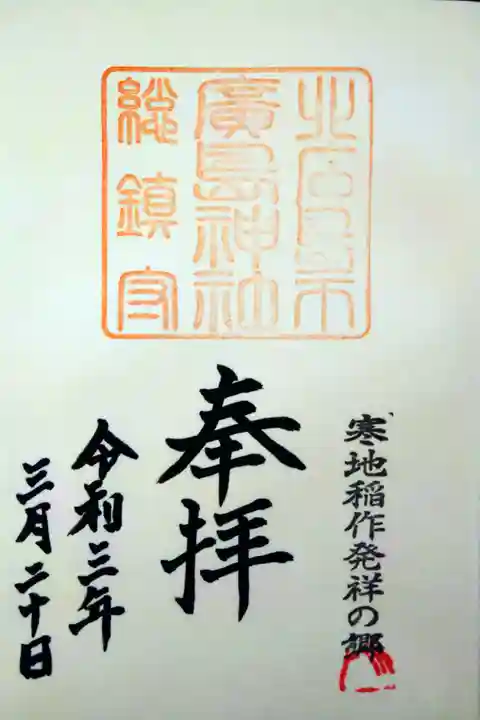 北広島市
廣島神社
総鎮守
寒地稲作発祥の郷
奉拝
令和三年
三月二十日